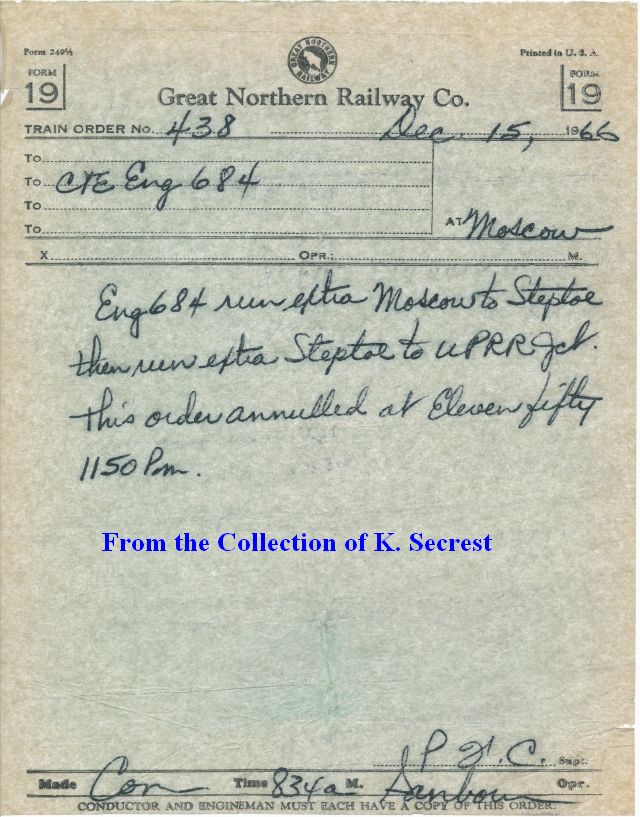 Form 249½
GREAT NORTHERN RAILWAY
Printed in U. S. A.
FORM 19
Great Northern Railway Co.
FORM 19
TRAIN ORDER No. 438 Dec. 15, 1966
To
To C&E Eng 684
To
To
AT Moscow
X OPR.: M.
Eng 684 run extra Moscow to Steptoe
then run extra Steptoe to UPRR Jct.
This order annulled at Eleven fifty
1150 Pm.
From the Collection of K. Secrest
Supt.
Made Com Time 834a M. Sanborn Opr.
CONDUCTOR AND ENGINEMAN MUST EACH HAVE A COPY OF THIS ORDER.